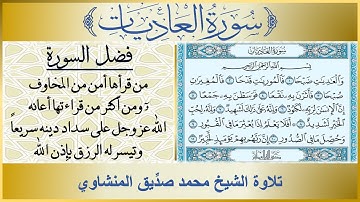 سورة العاديات
فضل السورة
من قرأها أمن من المخاوف
ومن أكثر من قراءتها أعانه
الله عز وجل على سداد دينه سريعاً
وتيسر له الرزق بإذن الله
سورة العاديات
بسم الله الرحمن الرحيم
والعاديات ضبحا فالموريات قدحا فالمغيرات
صبحا فأثرن به نقعا فوسطن به جمعا إن
الإنسان لربه لكنود وإنه على ذلك لشهيد وإنه لحب
الخير لشديد أفلا يعلم إذا بعثر ما في القبور
وحصل ما في الصدور
تلاوة الشيخ محمد صدّيق المنشاوي